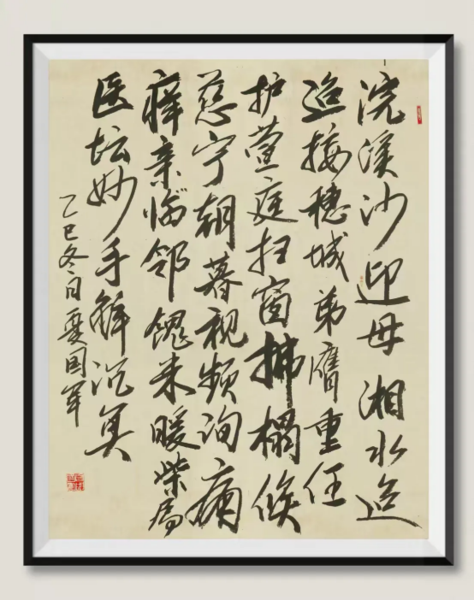 浣溪沙迎母 湘水迢
迢接穗城弟膺重任
护萱庭扫窗拂榻候
慈宁朝暮视频询痛
痒亲临邻馈米暖柴扃
医坛妙手解沉冥
乙巳冬日夏国军